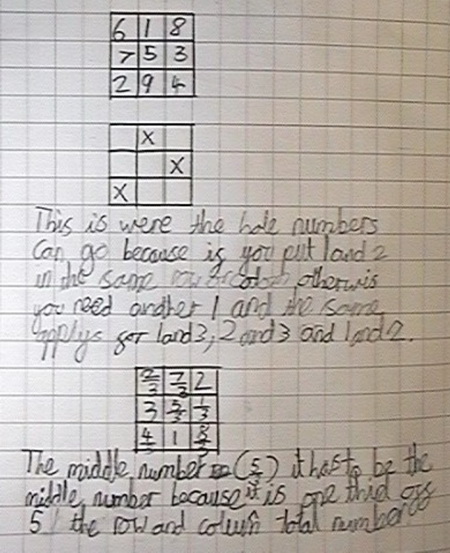 6 1 8
7 5 3
2 9 4
X
X
X
This is were the hole numbers
Can go because is you put 1 and 2
in the same row or otherwis
you need another 1 and the same
applys for 1 and 3, 2 and 3 and 1 and 2.
2/3 7/3 2
3 5/3 1/3
4/3 1 8/3
The middle number (5/3) it has to be the
middle number because it is one third off
5 the row and colum total number